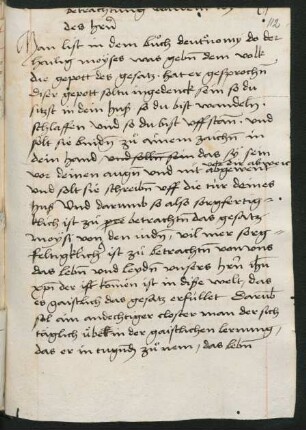 des herñ
Man list in dem buch deutronomy do der
hailig moyses was geben dem volk
die gepott des gesatz hat er gesprochñ
diser gepott soltu ingedenck sein so du
sitzst in dem hus so du bist wandeln
schlaffen und so du bist uff stan und
solt sie binden zu ainem zaichñ in
dein hand und sollen sein das sy sein
vor deinen augñ und nit abgewent
und solt sie schreibñ uff die tür deines
hus Und darumb so also sorgfertig-
klich ist zu betrachtñ das gesatz
moysi von den iudñ, vil mer sorg-
felticklich ist zu betrachtñ von uns
das leben und leyden unsers herñ ihũ
xp̃i der ist komen ist in dise welt das
er gaistlich das gesatz erfüllet Darũb
sol ain andechtiger closter man der sich
täglich übet in der gaistlichen lernung,
das er in tugenden zu nem, das leben